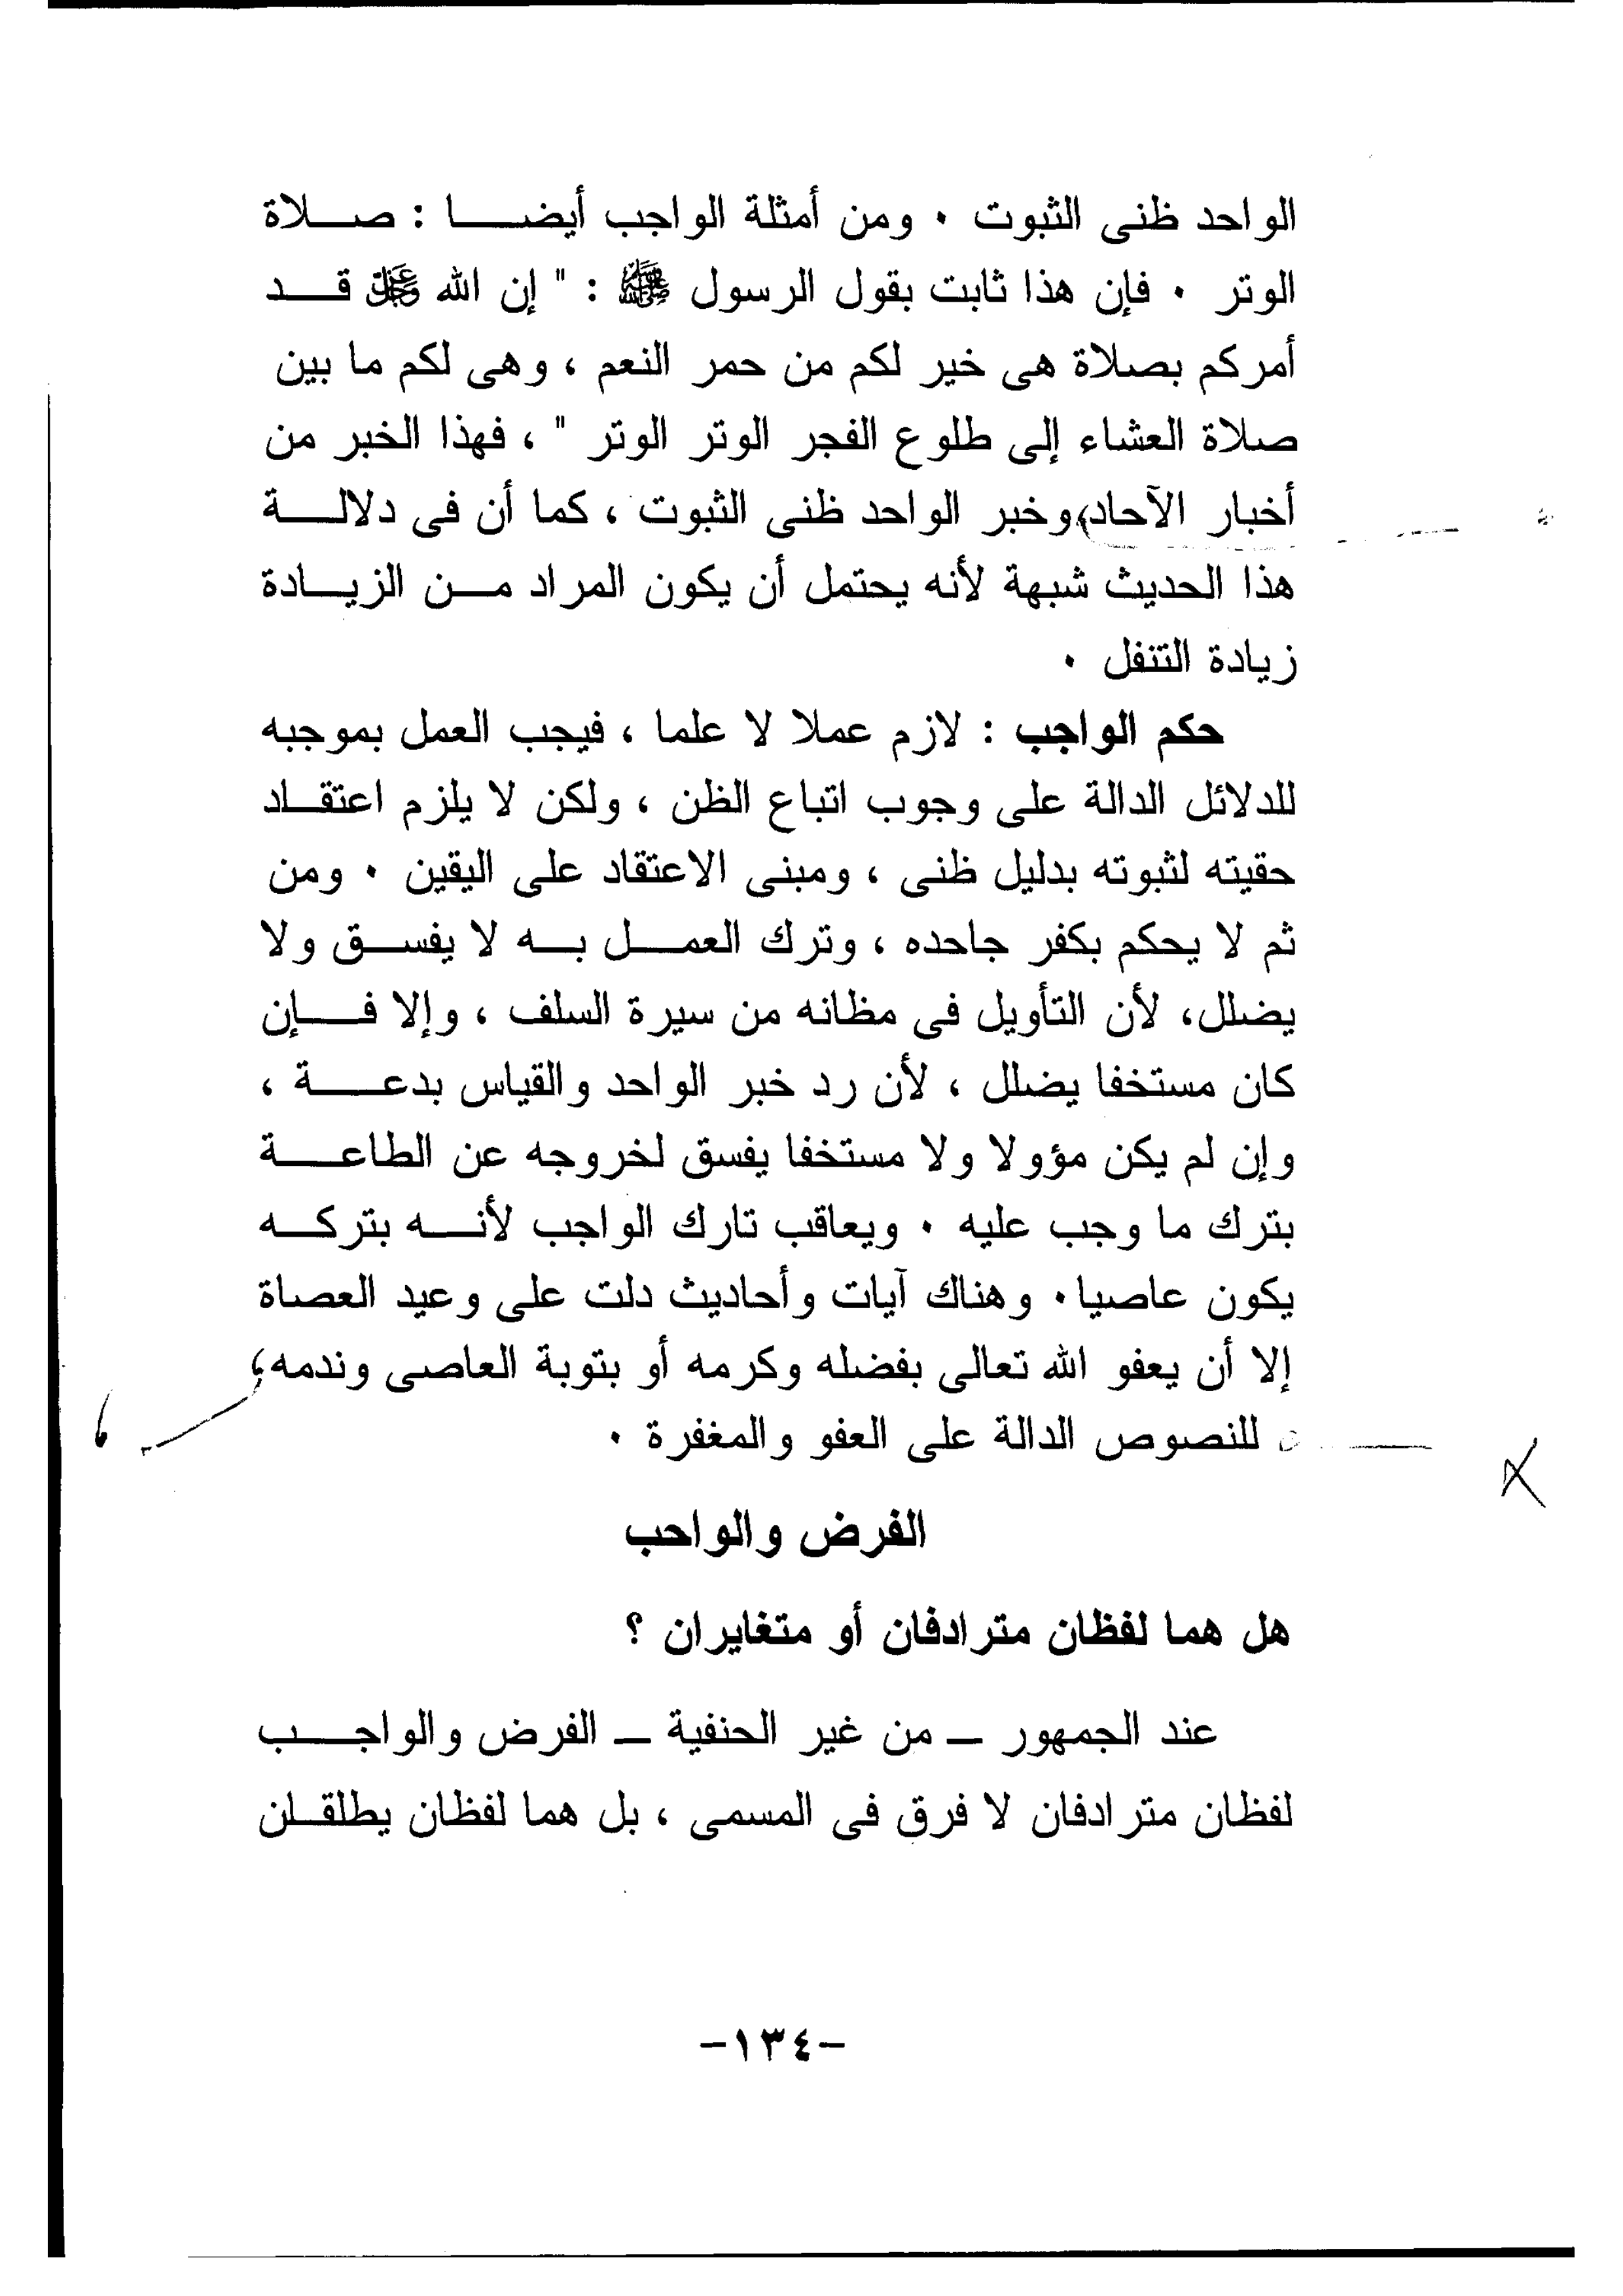 الواحد ظنى الثبوت ٠ ومن أمثلة الواجب أيضا : صلاة
الوتر ٠ فإن هذا ثابت بقول الرسول ﷺ : " إن الله عز وجل قد
أمركم بصلاة هى خير لكم من حمر النعم ، وهى لكم ما بين
صلاة العشاء إلى طلوع الفجر الوتر الوتر " ، فهذا الخبر من
أخبار الآحاد، وخبر الواحد ظنى الثبوت ، كما أن فى دلالة
هذا الحديث شبهة لأنه يحتمل أن يكون المراد من الزيادة
زيادة التنفل ٠
حكم الواجب : لازم عملا لا علما ، فيجب العمل بموجبه
للدلائل الدالة على وجوب اتباع الظن ، ولكن لا يلزم اعتقاد
حقيته لثبوته بدليل ظنى ، ومبنى الاعتقاد على اليقين ٠ ومن
ثم لا يحكم بكفر جاحده ، وترك العمل به لا يفسق ولا
يضلل، لأن التأويل فى مظانه من سيرة السلف ، وإلا فإن
كان مستخفا يضلل ، لأن رد خبر الواحد والقياس بدعة ،
وإن لم يكن مؤولا ولا مستخفا يفسق لخروجه عن الطاعة
بترك ما وجب عليه ٠ ويعاقب تارك الواجب لأنه بتركه
يكون عاصيا٠ وهناك آيات وأحاديث دلت على وعيد العصاة
إلا أن يعفو الله تعالى بفضله وكرمه أو بتوبة العاصى وندمه،
للنصوص الدالة على العفو والمغفرة ٠
الفرض والواحب
هل هما لفظان مترادفان أو متغايران ؟
عند الجمهور ــ من غير الحنفية ــ الفرض والواجب
لفظان مترادفان لا فرق فى المسمى ، بل هما لفظان يطلقان
-١٣٤-